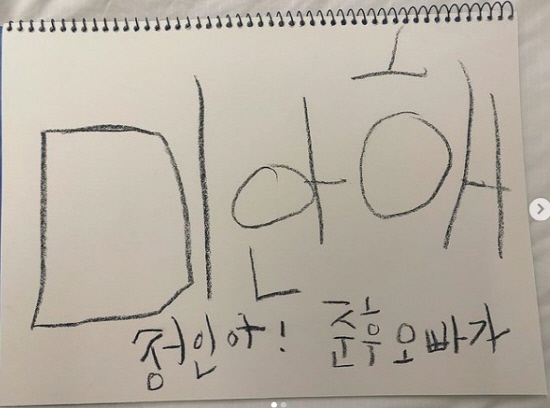 미안해
정인아! 준후 오빠가